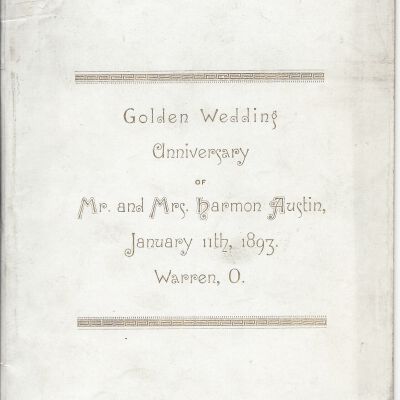 Golden Wedding
Anniversary
OF
Mr. and Mrs. Harmon Austin,
January 11th, 1893.
Warren, O.